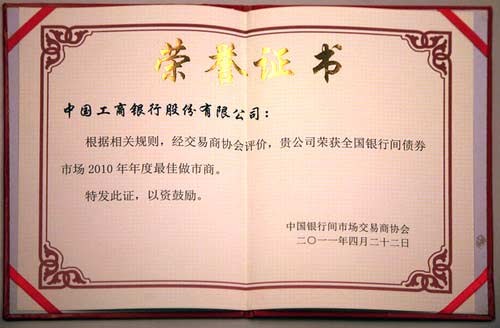 荣誉证书
中国工商银行股份有限公司：
根据相关规则，经交易商协会评价，贵公司荣获全国银行间债券
市场2010年年度最佳做市商。
特发此证，以资鼓励。
中国银行间市场交易商协会
二〇一一年四月二十二日